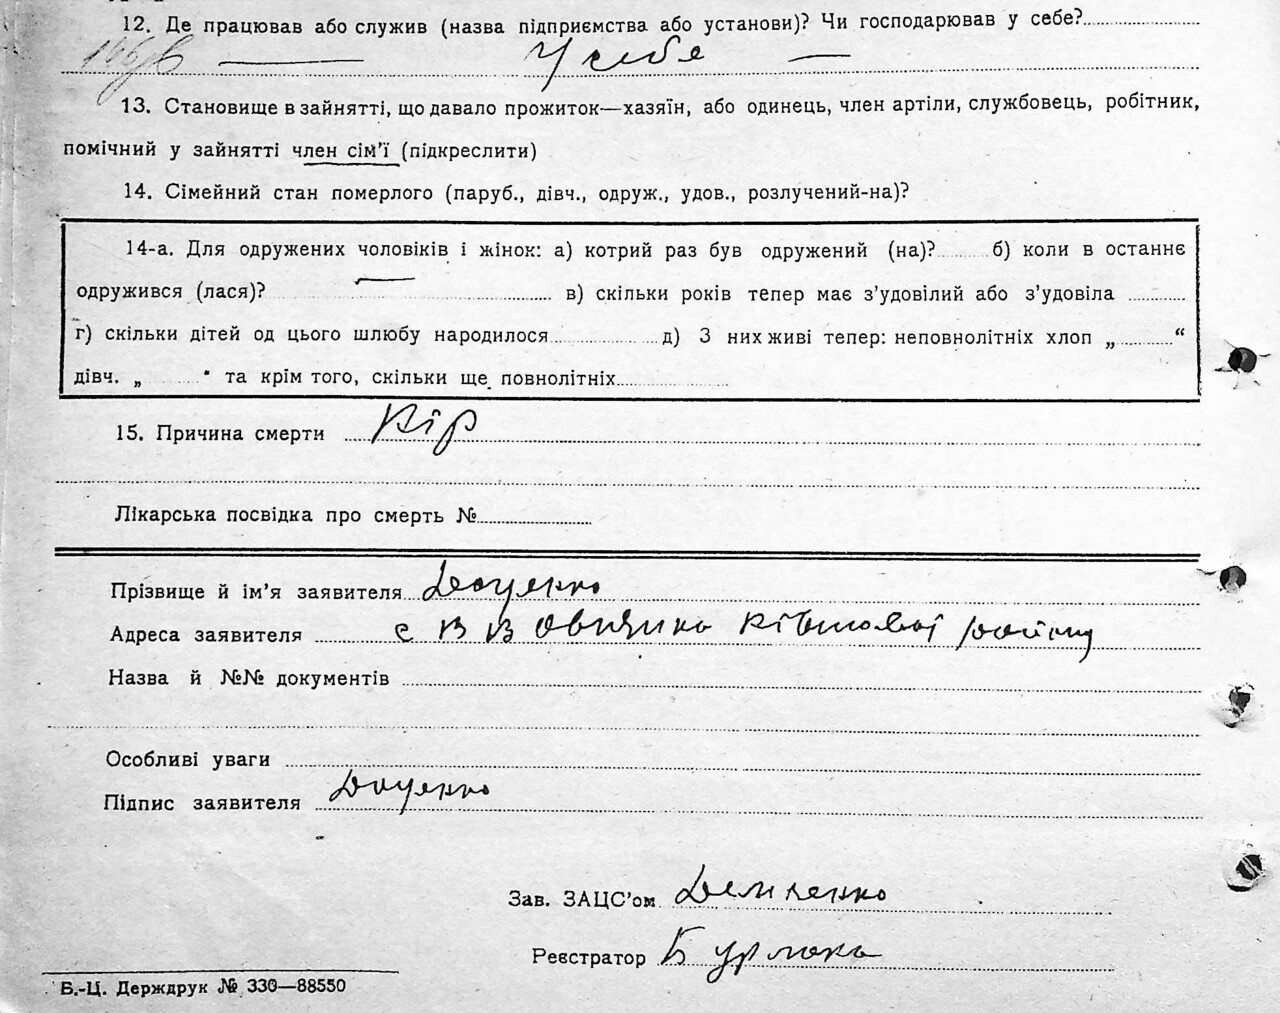 12. Де працював або служив (назва підприємства або установи)? Чи господарював у себе?
У себе
13. Становище в зайнятті, що давало прожиток—хазяїн, або одинець, член артіли, службовець, робітник,
помічний у зайнятті член сім'ї (підкреслити)
14. Сімейний стан померлого (паруб., дівч., одруж., удов., розлучений-на)?
14-а. Для одружених чоловіків і жінок: а) котрий раз був одружений (на)? б) коли в останнє
одружився (лася)? в) скільки років тепер має з'удовілий або з'удовіла
г) скільки дітей од цього шлюбу народилося д) З них живі тепер: неповнолітніх хлоп „ “
дівч. „ " та крім того, скільки ще повнолітніх
15. Причина смерти Кір
Лікарська посвідка про смерть №
Прізвище й ім'я заявителя Доценко
Адреса заявителя с району
Назва й №№ документів
Особливі уваги
Підпис заявителя Доценко
Зав. ЗАЦС'ом Демченко
Реєстратор Бурлака
Б.-Ц. Держдрук № 330—88550